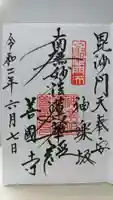 毘沙門天奉安
神楽坂
南無妙法蓮華経
善國寺
令和二年六月七日